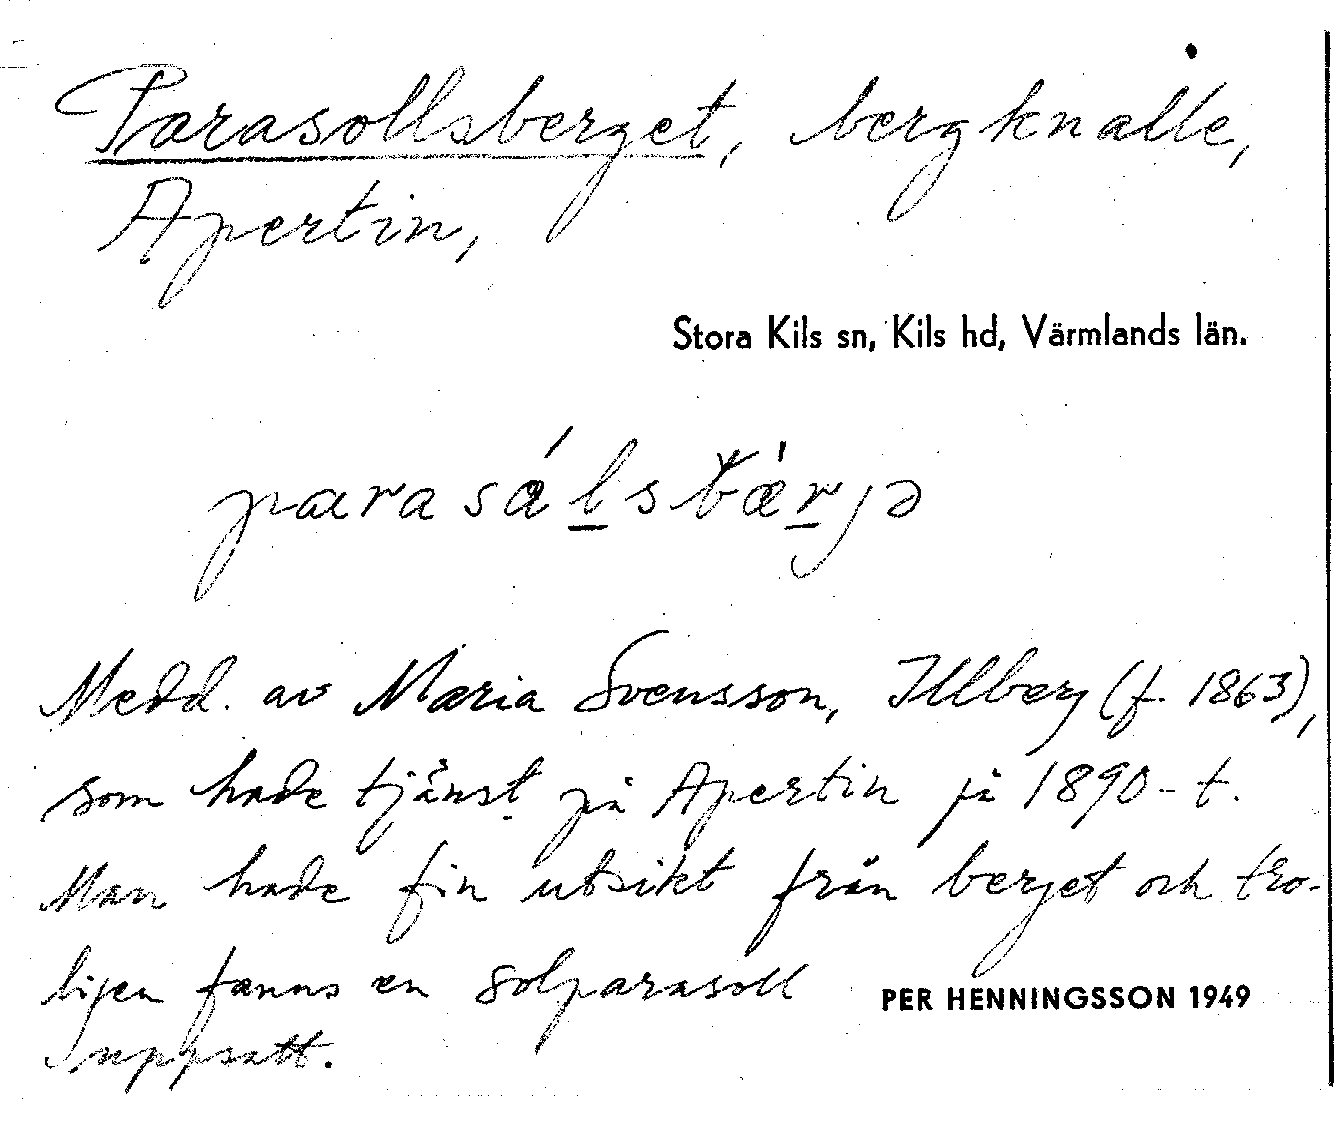 Parasollsberget, bergknalle,
Apertin,
Stora Kils sn, Kils hd, Värmlands län.
Medd. av Maria Svensson, Illberg (f. 1863),
som hade tjänst på Apertin på 1890-t.
Man hade fin utsikt från berget och tro-
ligen fanns en solparasoll
uppsatt.
PER HENNINGSSON 1949